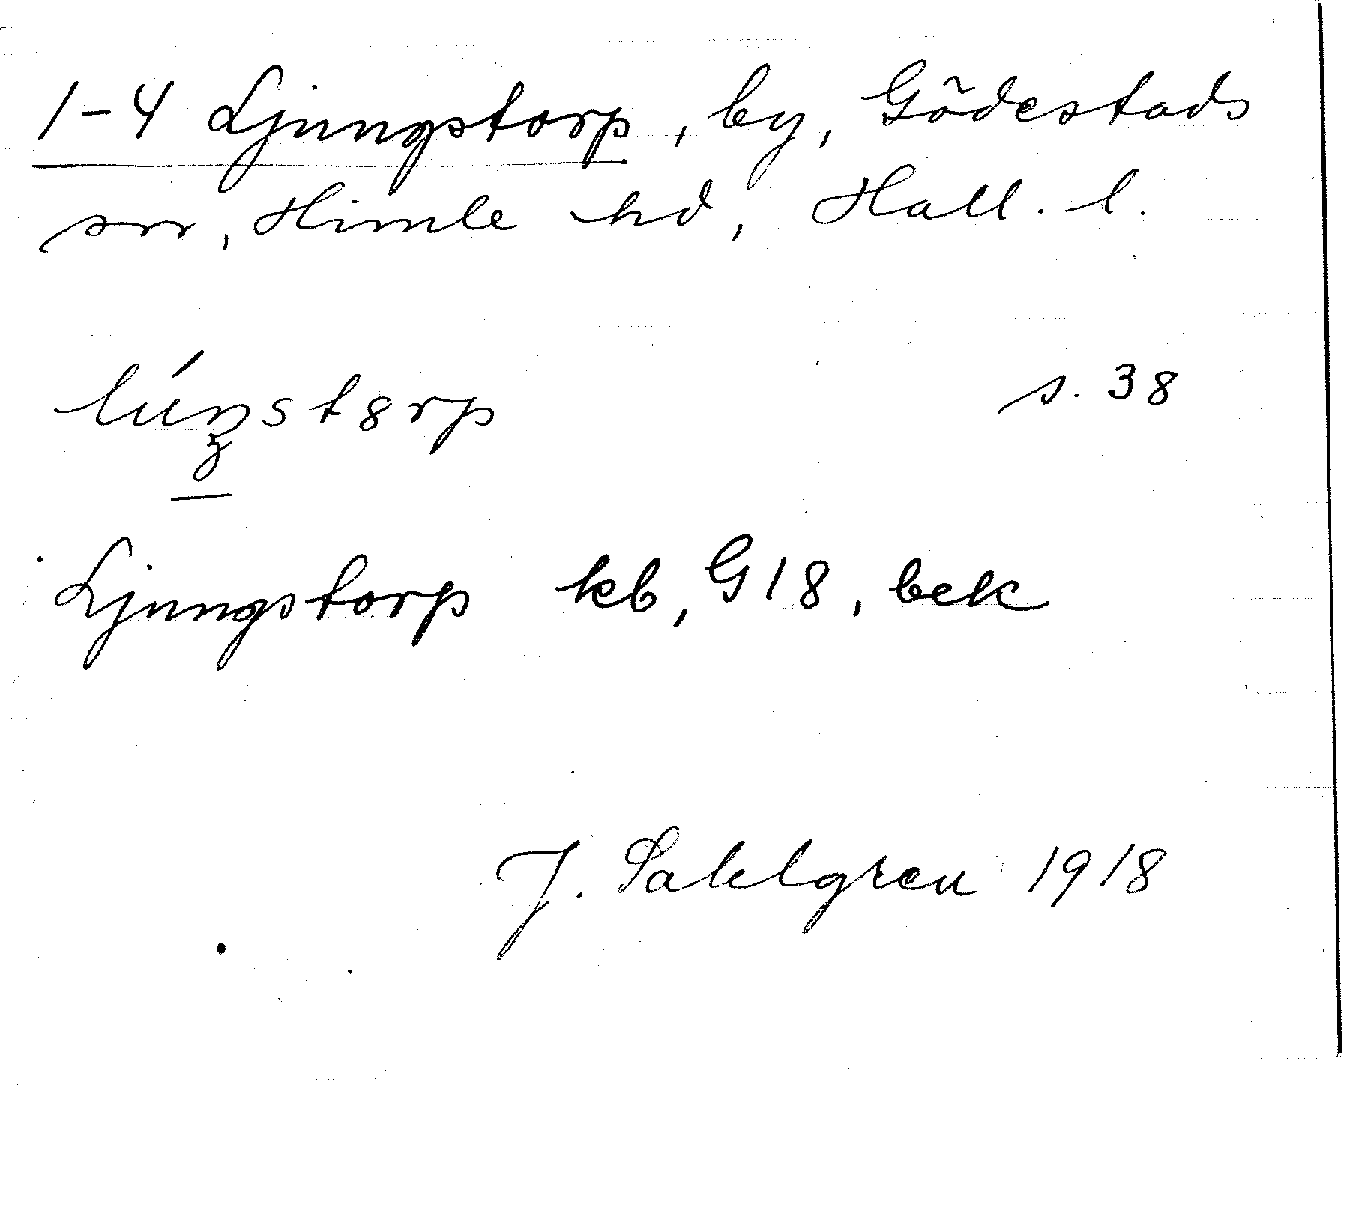 1-4 Ljungstorp, by, Gödestads
sn, Himle hd, Hall. l.
lúŋstorp s. 38
Ljungstorp kb, G18, bek
J. Sahlgren 1918